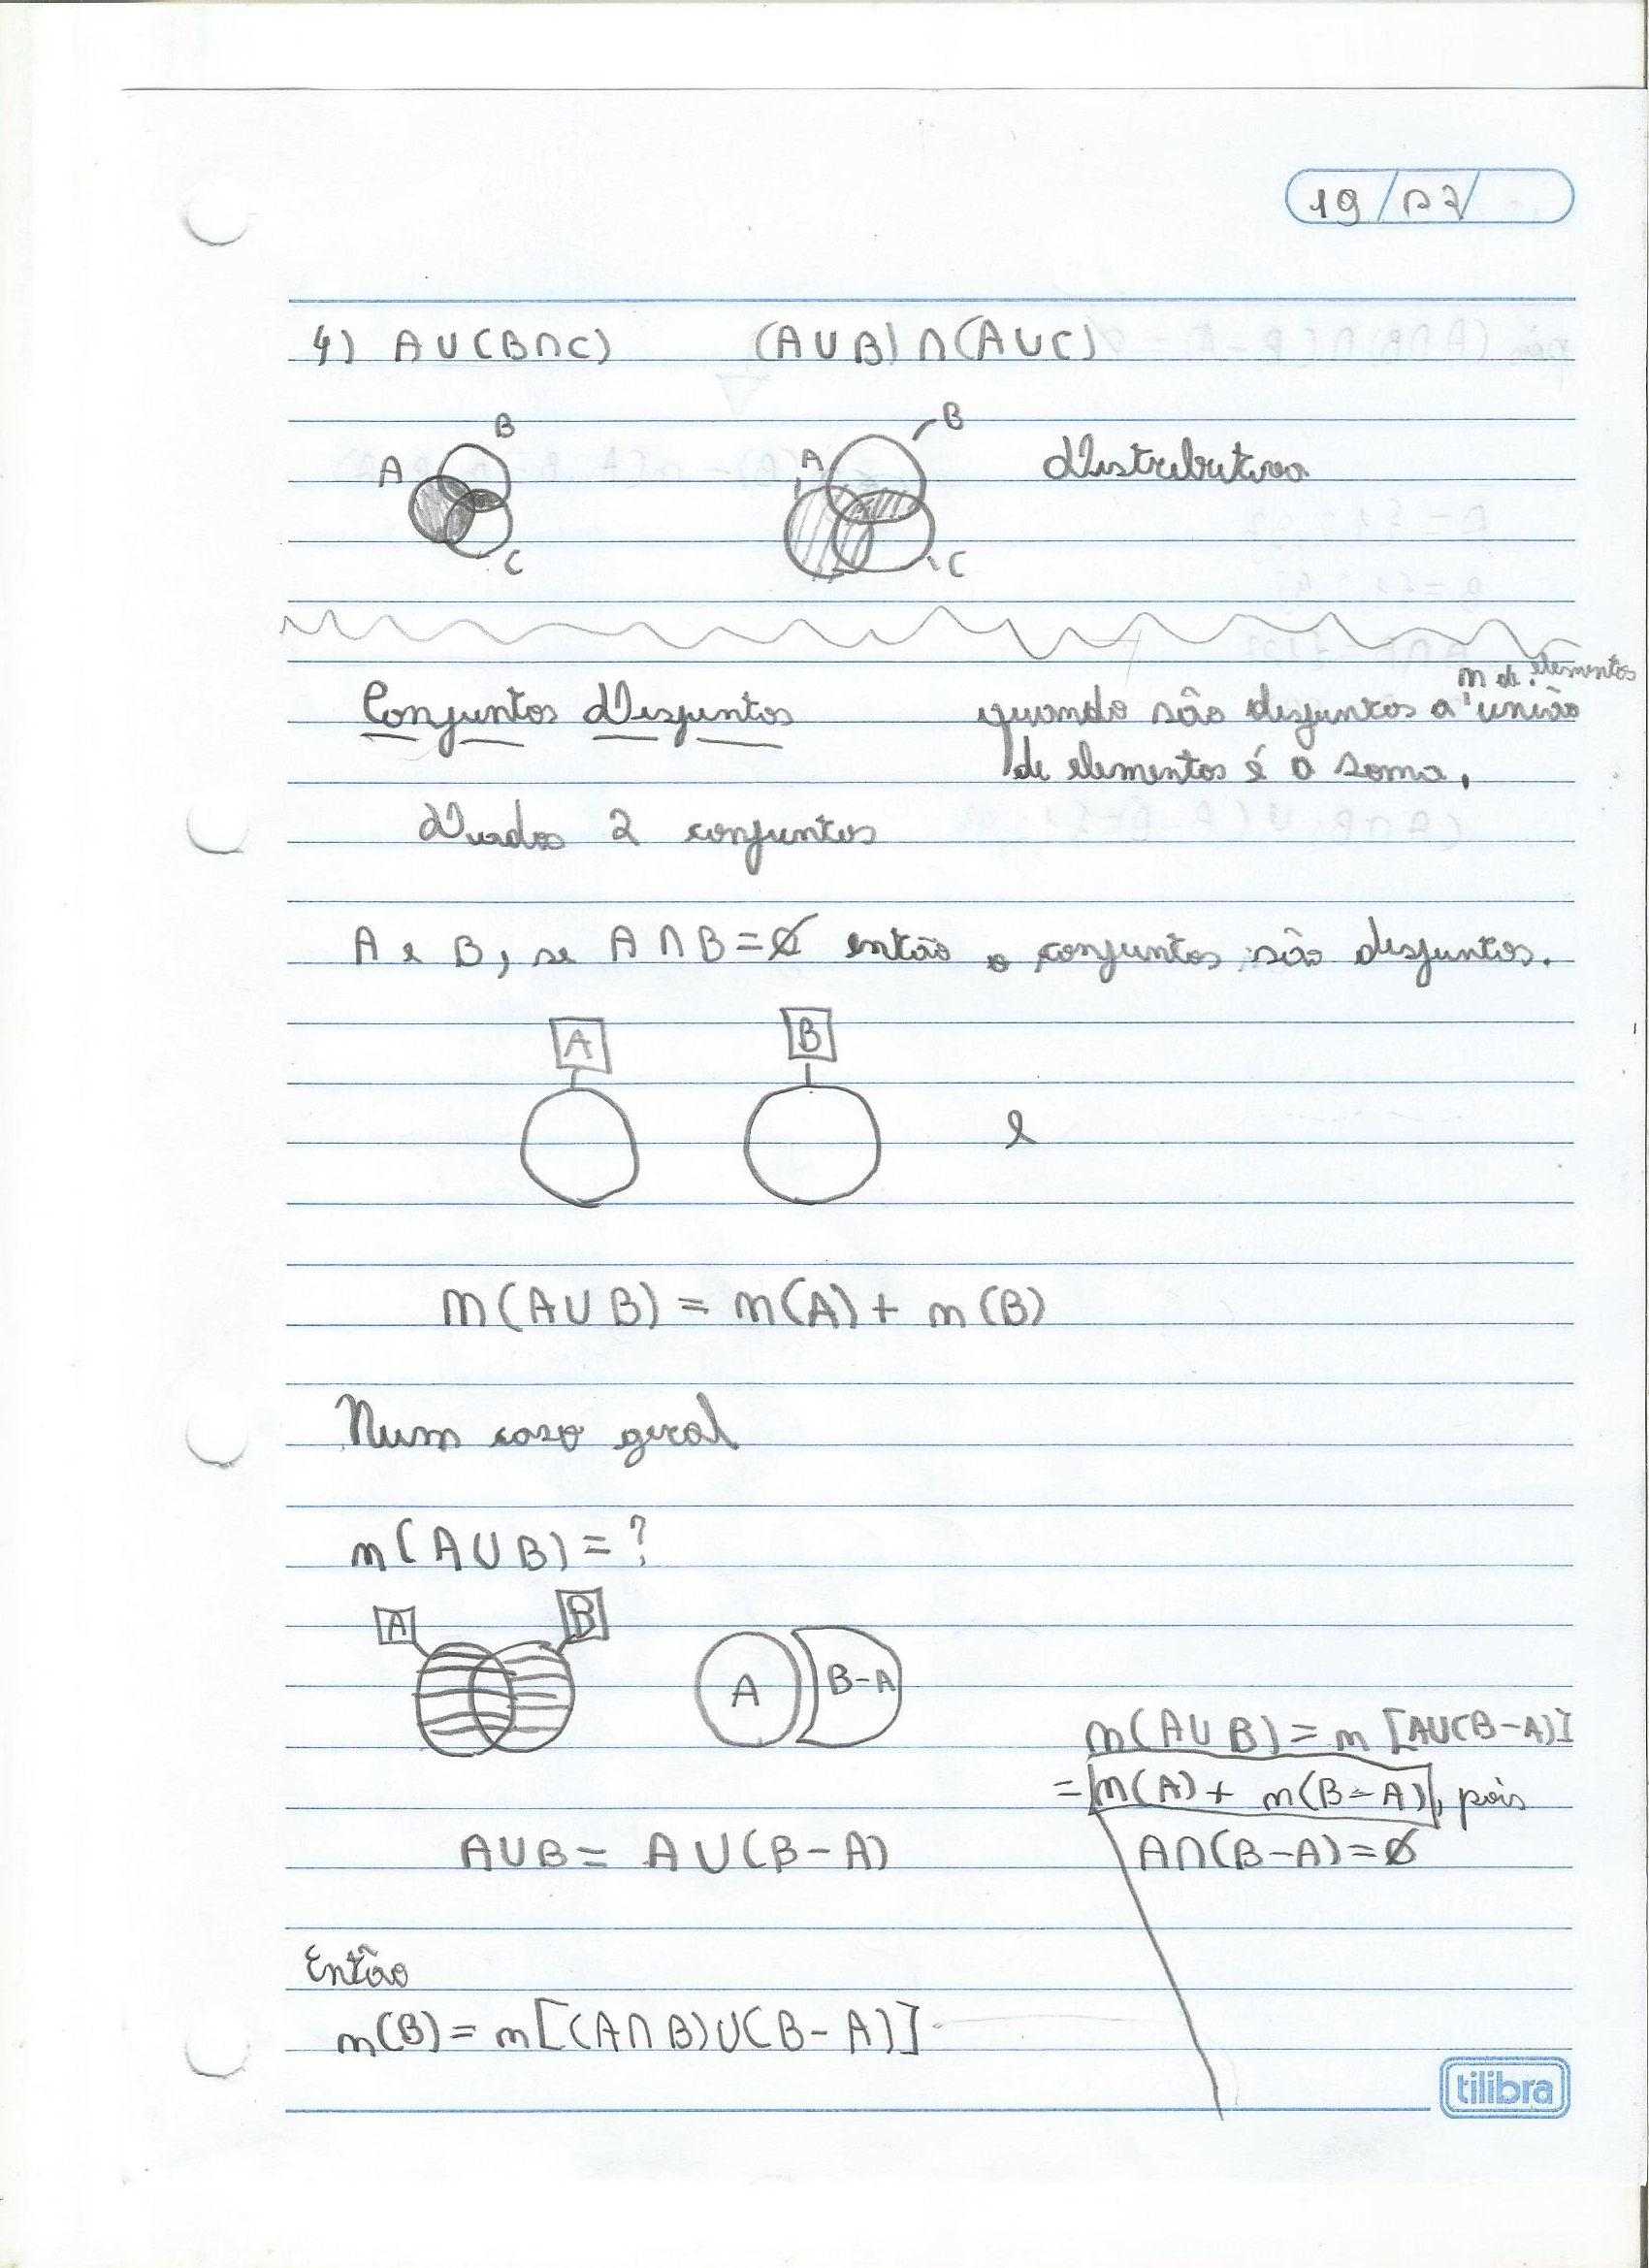 19/07/
4) A∪(B∩C) (A∪B)∩(A∪C)
B
A
C
B
A
C
Distributiva
n de elementos
Conjuntos Disjuntos quando são disjuntos a união
de elementos é a soma.
Dados 2 conjuntos
A e B, se A∩B=∅ então o conjuntos são disjuntos.
A B
e
n(A∪B) = n(A) + n(B)
Num caso geral
n(A∪B) = ?
A B
A B-A
n(A∪B) = n[A∪(B-A)]
= n(A) + n(B-A), pois
A∪B = A∪(B-A)
A∩(B-A)=∅
Então
n(B) = n[(A∩B)∪(B-A)]
tilibra